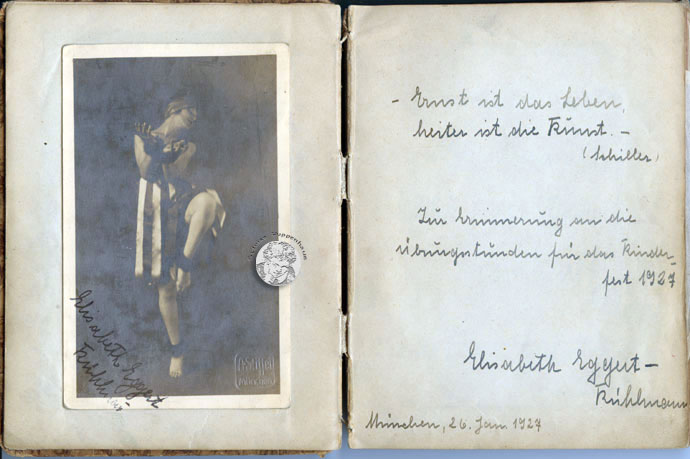 Elisabeth Eggert
- Ernst ist das Leben,
heiter ist die Kunst. -
(Schiller)
Zur Erinnerung an die
Übungsstunden für das Kinder-
fest 1927
Elisabeth Eggert-
Kühlmann
München, 26. Jan 1927